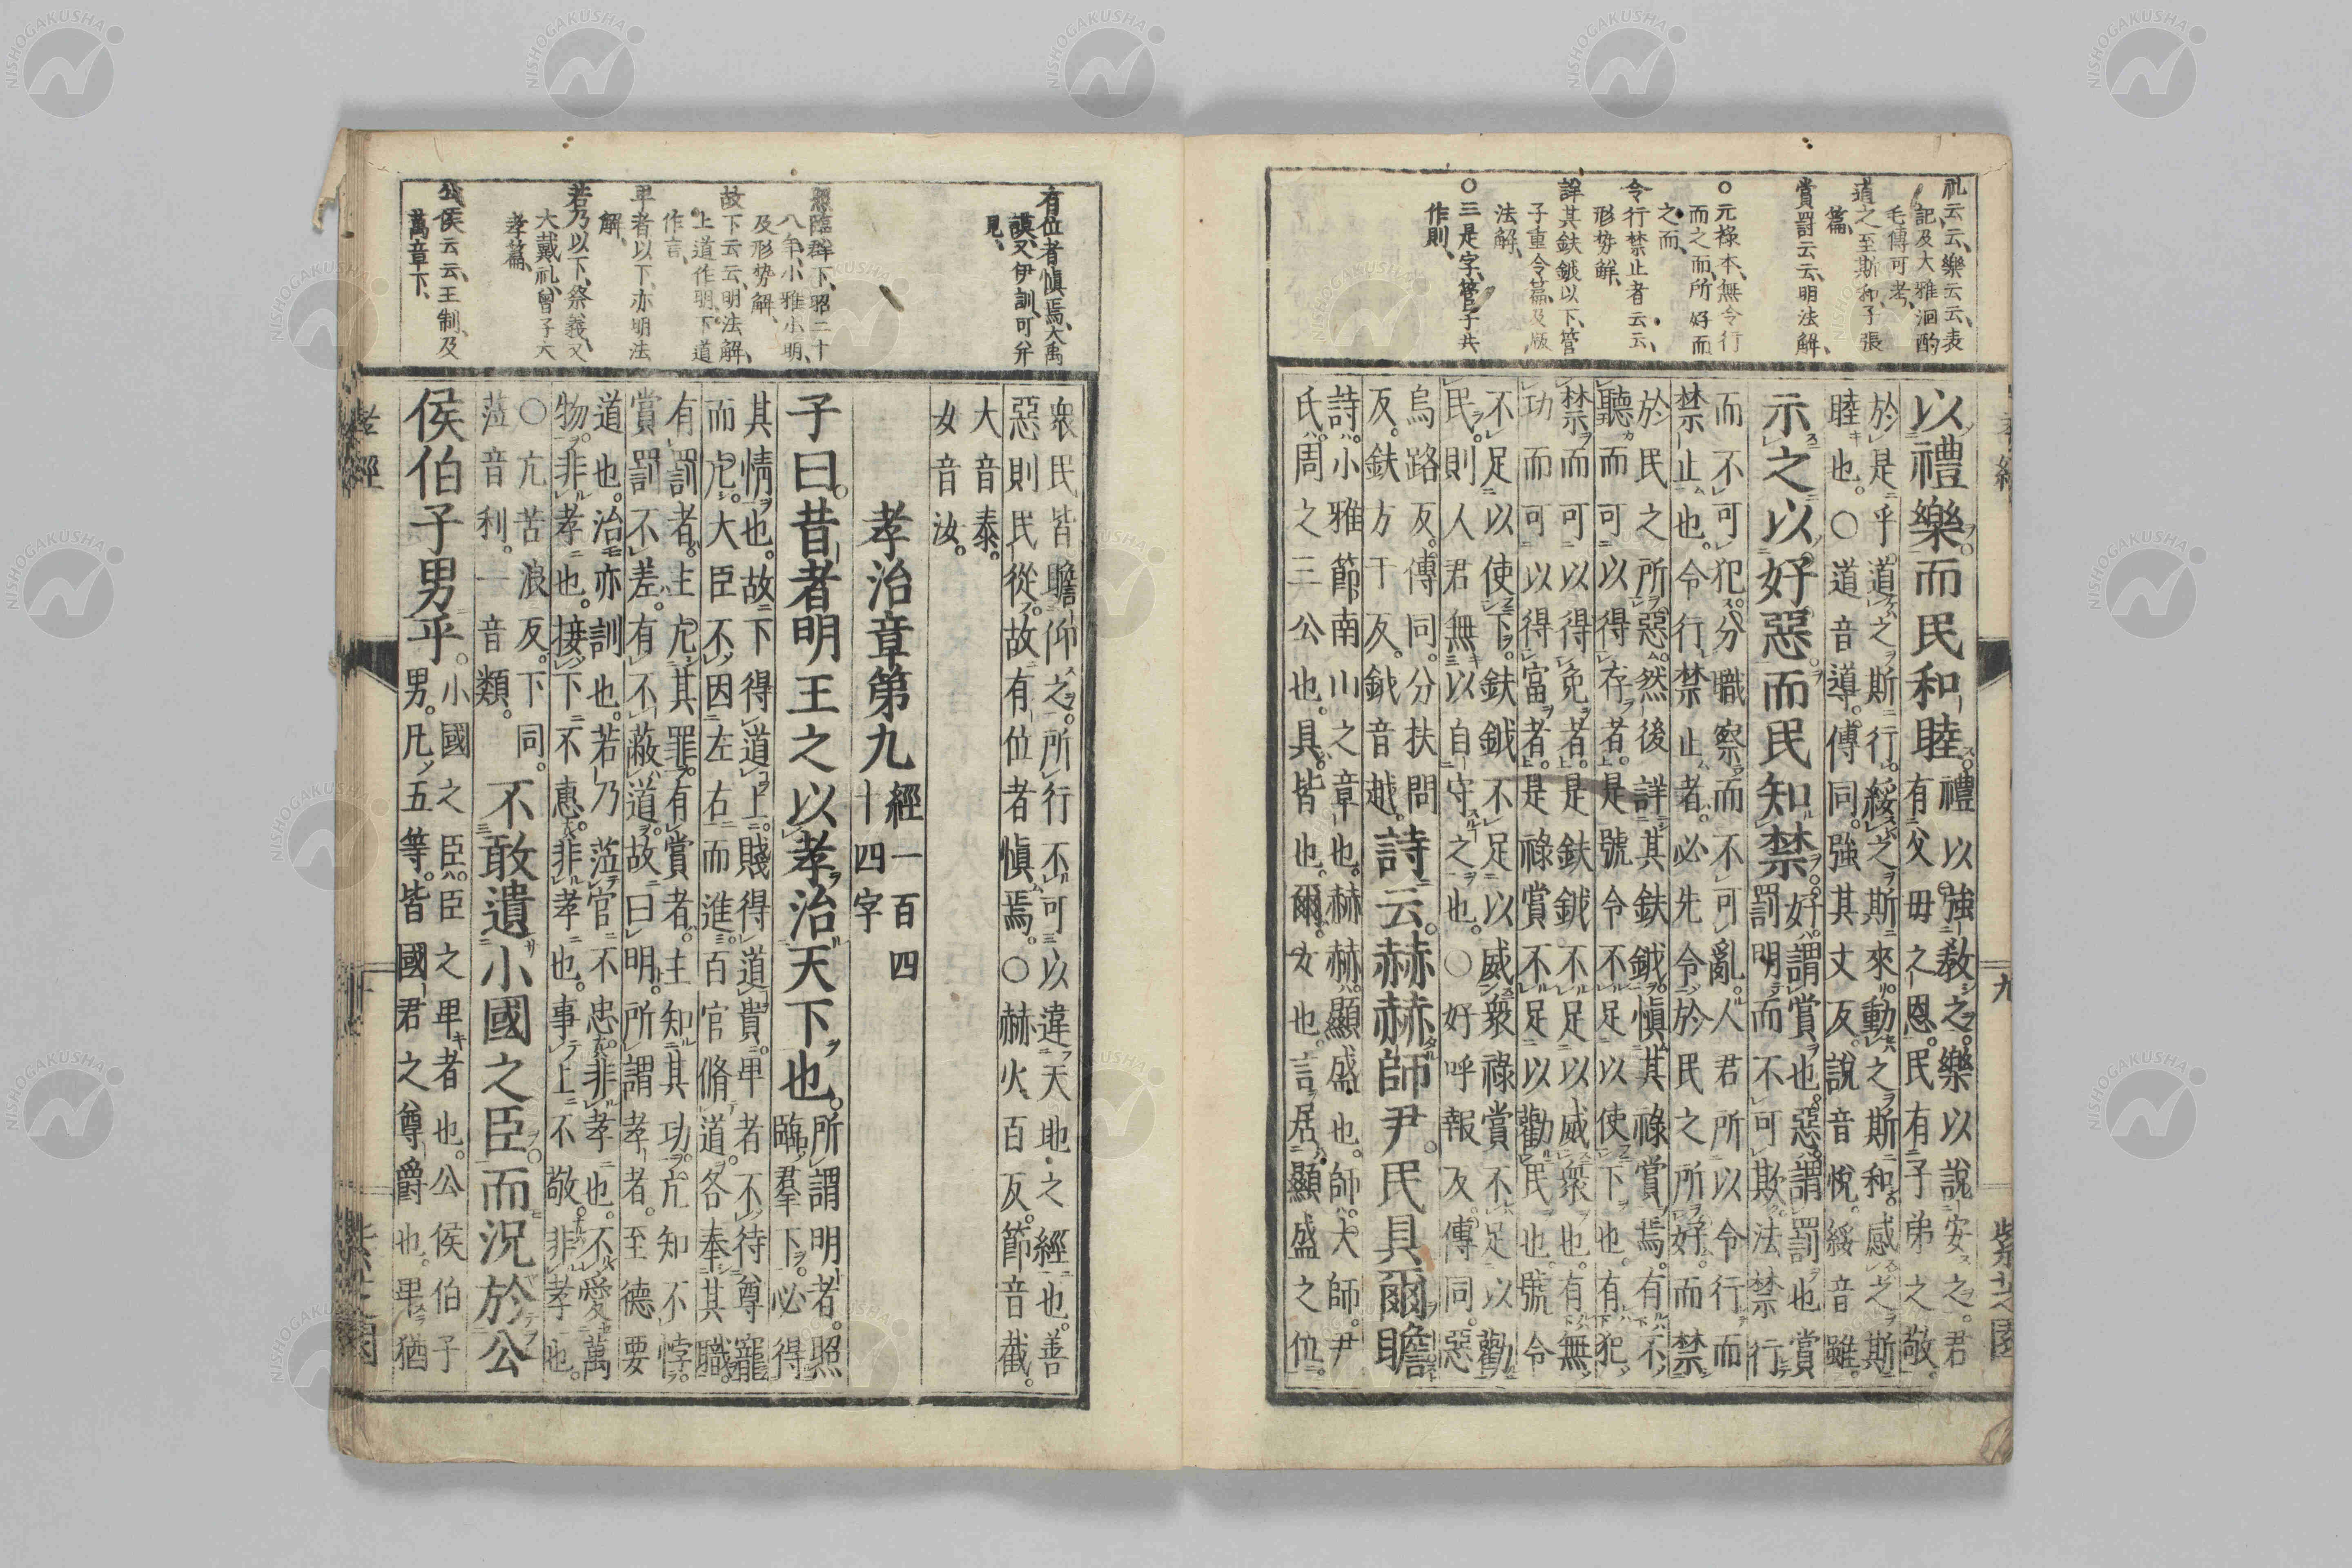 礼云云、樂云云、表
記及大雅泂酌
毛傳可考、
道之至斯和子張
篇、
賞罰云云、明法解、
○元祿本、無令行
而之而所好而
之而、
令行禁止者云云、
形勢解、
詳其鈇鉞以下、管
子重令篇、及版
法解、
○三是字、管子共
作則、
以禮樂而民和睦
禮以強敎之。樂以說安之。君
有父母之恩。民有子弟之敬。
於是乎。道之斯行。綏之斯來。動之斯和。感之斯
睦也。○道音導。傳同。強其丈反。說音悅。綏音雖。
示之以好惡而民知禁
好。謂賞也。惡。謂罰也。賞
罰明而不可欺。法禁行
而不可犯。分職察而不可亂。人君所以令行而
禁止也。令行禁止者。必先令於民之所好。而禁
於民之所惡。然後詳其鈇鉞。愼其祿賞焉。有不
聽而可以得存者。是號令不足以使下也。有犯
禁而可以得免者。是鈇鉞不足以威衆也。有無
功而可以得富者。是祿賞不足以勸民也。號令
不足以使下。鈇鉞不足以威衆。祿賞不足以勸
民。則人君無以自守之也。○好呼報反。傳同。惡
烏路反。傳同。分扶問
反。鈇方干反。鉞音越。
詩云。赫赫師尹。民具爾瞻
詩。小雅節南山之章也。赫赫。顯盛也。師。大師。尹
氏。周之三公也。具。皆也。爾。女也。言居顯盛之位。
有位者愼焉、大禹
謨、又伊訓、可幷
見、
照臨群下、昭二十
八年、小雅小明、
及形勢解、
故下云云、明法解、
上道作明、下道
作言、
卑者以下、亦明法
解、
若乃以下、祭義、又
大戴礼、曾子大
孝篇、
公侯云云、王制、及
萬章下、
衆民皆瞻仰之。所行不可以違天地之經也。善
惡則民從。故有位者愼焉。○赫火百反。節音截。
大音泰。
女音汝。
孝治章第九
經一百四
十四字
子曰。昔者明王之以孝治天下也。
所謂明者。照
臨群下。必得
其情也。故下得道上。賤得道貴。卑者不待尊寵
而亢。大臣不因左右而進。百官脩道。各奉其職。
有罰者。主亢其罪。有賞者。主知其功。亢知不悖。
賞罰不差。有不蔽道。故曰明。所謂孝者。至德要
道也。治亦訓也。若乃涖官不忠。非孝也。不愛萬
物。非孝也。接下不惠。非孝也。事上不敬。非孝也。
○亢苦浪反。下同。
涖音利。一音類。
不敢遺小國之臣。而況於公
侯伯子男乎。
小國之臣。臣之卑者也。公侯伯子
男。凡五等。皆國君之尊爵也。卑猶
孝經
九
紫芝園